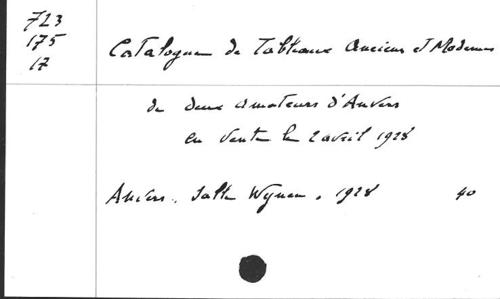 723
175
17
Catalogue de Tableaux Anciens et Modernes
de deux amateurs d'Anvers
en vente le 2 avril 1928
Anvers, Salle Wynen, 1928 40